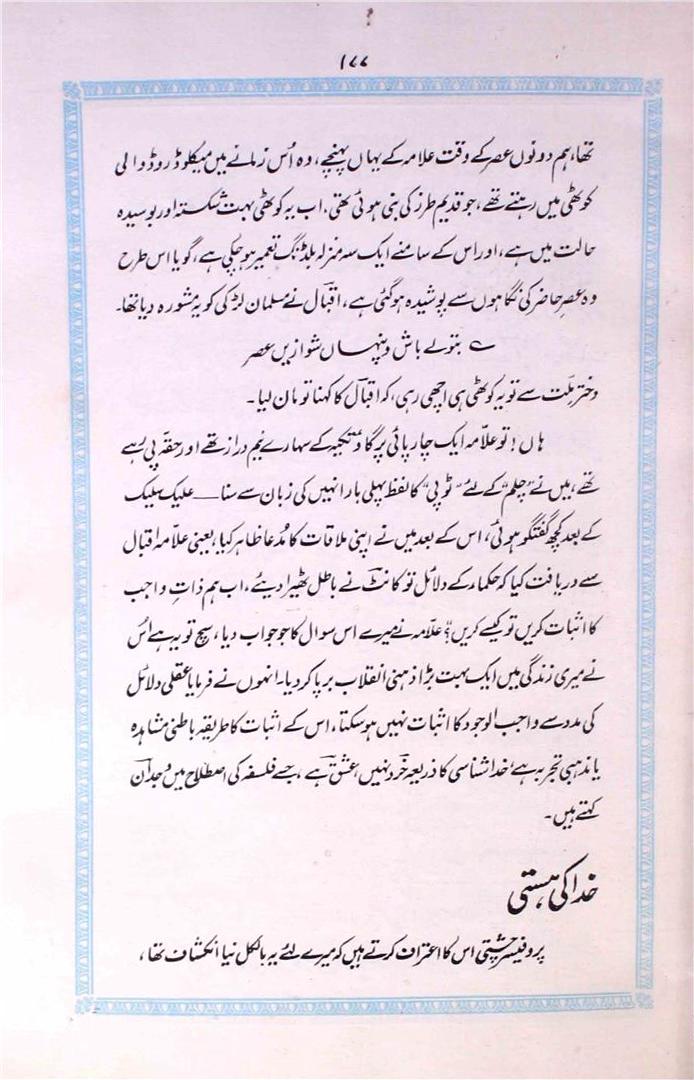 ۱۷۷
تھا، ہم دونوں عصر کے وقت علامہ کے یہاں پہنچے، وہ اُس زمانے میں میکلوڈ روڈ والی
کوٹھی میں رہتے تھے، جو قدیم طرز کی بنی ہوئی تھی، اب یہ کوٹھی بہت شکستہ اور بوسیدہ
حالت میں ہے، اور اس کے سامنے ایک سہ منزلہ بلڈنگ تعمیر ہو چکی ہے، گویا اس طرح
وہ عصرِ حاضر کی نگاہوں سے پوشیدہ ہو گئی ہے، اقبال نے مسلمان لڑکی کو یہ مشورہ دیا تھا۔
ع بتولے باش و پنہاں شو ازیں عصر
دخترِ ملّت سے تو یہ کوٹھی ہی اچھی رہی، کہ اقبال کا کہنا تو مان لیا۔
ہاں! تو علّامہ ایک چارپائی پر گاؤ تکیہ کے سہارے نیم دراز تھے اور حقہ پی رہے
تھے، میں نے "چلم" کے لئے "ٹوپی" کا لفظ پہلی بار انہیں کی زبان سے سنا — علیک سلیک
کے بعد کچھ گفتگو ہوئی، اس کے بعد میں نے اپنی ملاقات کا مدّعا ظاہر کیا، یعنی علّامہ اقبال
سے دریافت کیا کہ حکماء کے دلائل تو کانٹ نے باطل ٹھیرا دیئے، اب ہم ذاتِ واجب
کا اثبات کریں تو کیسے کریں؟ علّامہ نے میرے اس سوال کا جو جواب دیا، سچ تو یہ ہے اُس
نے میری زندگی میں ایک بہت بڑا ذہنی انقلاب برپا کر دیا۔ انہوں نے فرمایا عقلی دلائل
کی مدد سے واجب الوجود کا اثبات نہیں ہو سکتا، اس کے اثبات کا طریقہ باطنی مشاہدہ
یا مذہبی تجربہ ہے، خدا شناسی کا ذریعہ خرد نہیں عشق ہے، جسے فلسفہ کی اصطلاح میں وجدان
کہتے ہیں۔
خدا کی ہستی
پروفیسر چشتی اس کا اعتراف کرتے ہیں کہ میرے لئے یہ بالکل نیا انکشاف تھا،